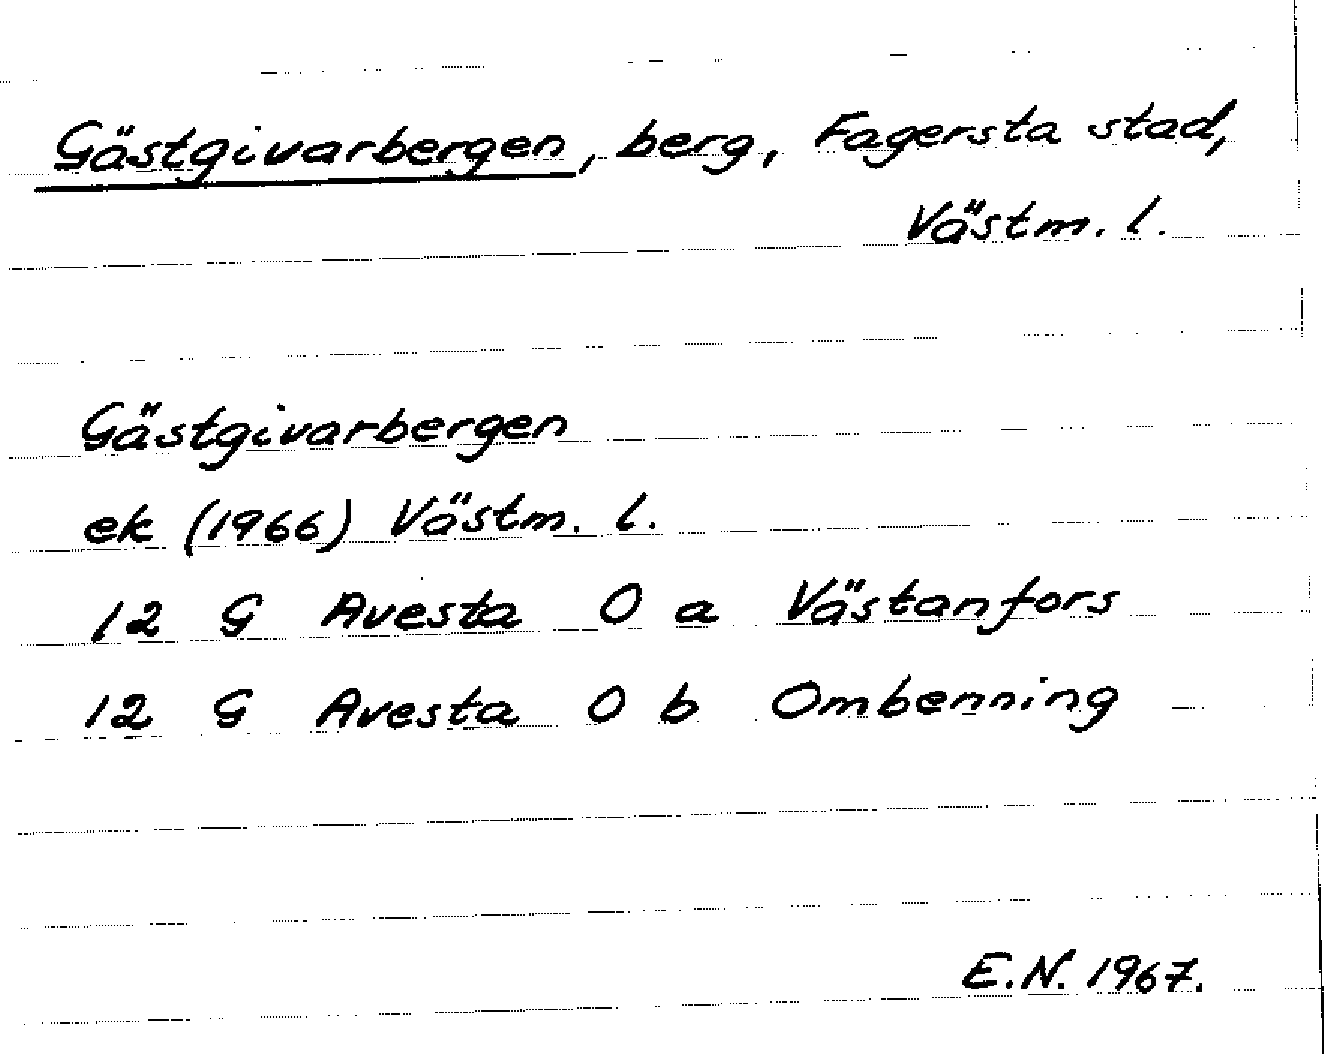 Gästgivarbergen, berg, Fagersta stad,
Västm. l.
Gästgivarbergen
ek (1966) Västm. l.
12 G Avesta 0 a Västanfors
12 G Avesta 0 b Ombenning
E.N. 1967.